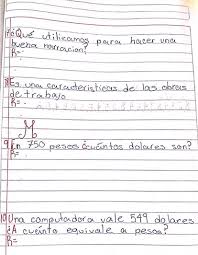 7¿Qué utilizamos para hacer una
buena narración?
R=.
8Es una caracteristicas de las obras
de trabajo
R=
9En 750 pesos cuántos dolares son?
R=
10Una computadora vale 549 dolares
¿A cuánto equivale a pesos?
R=